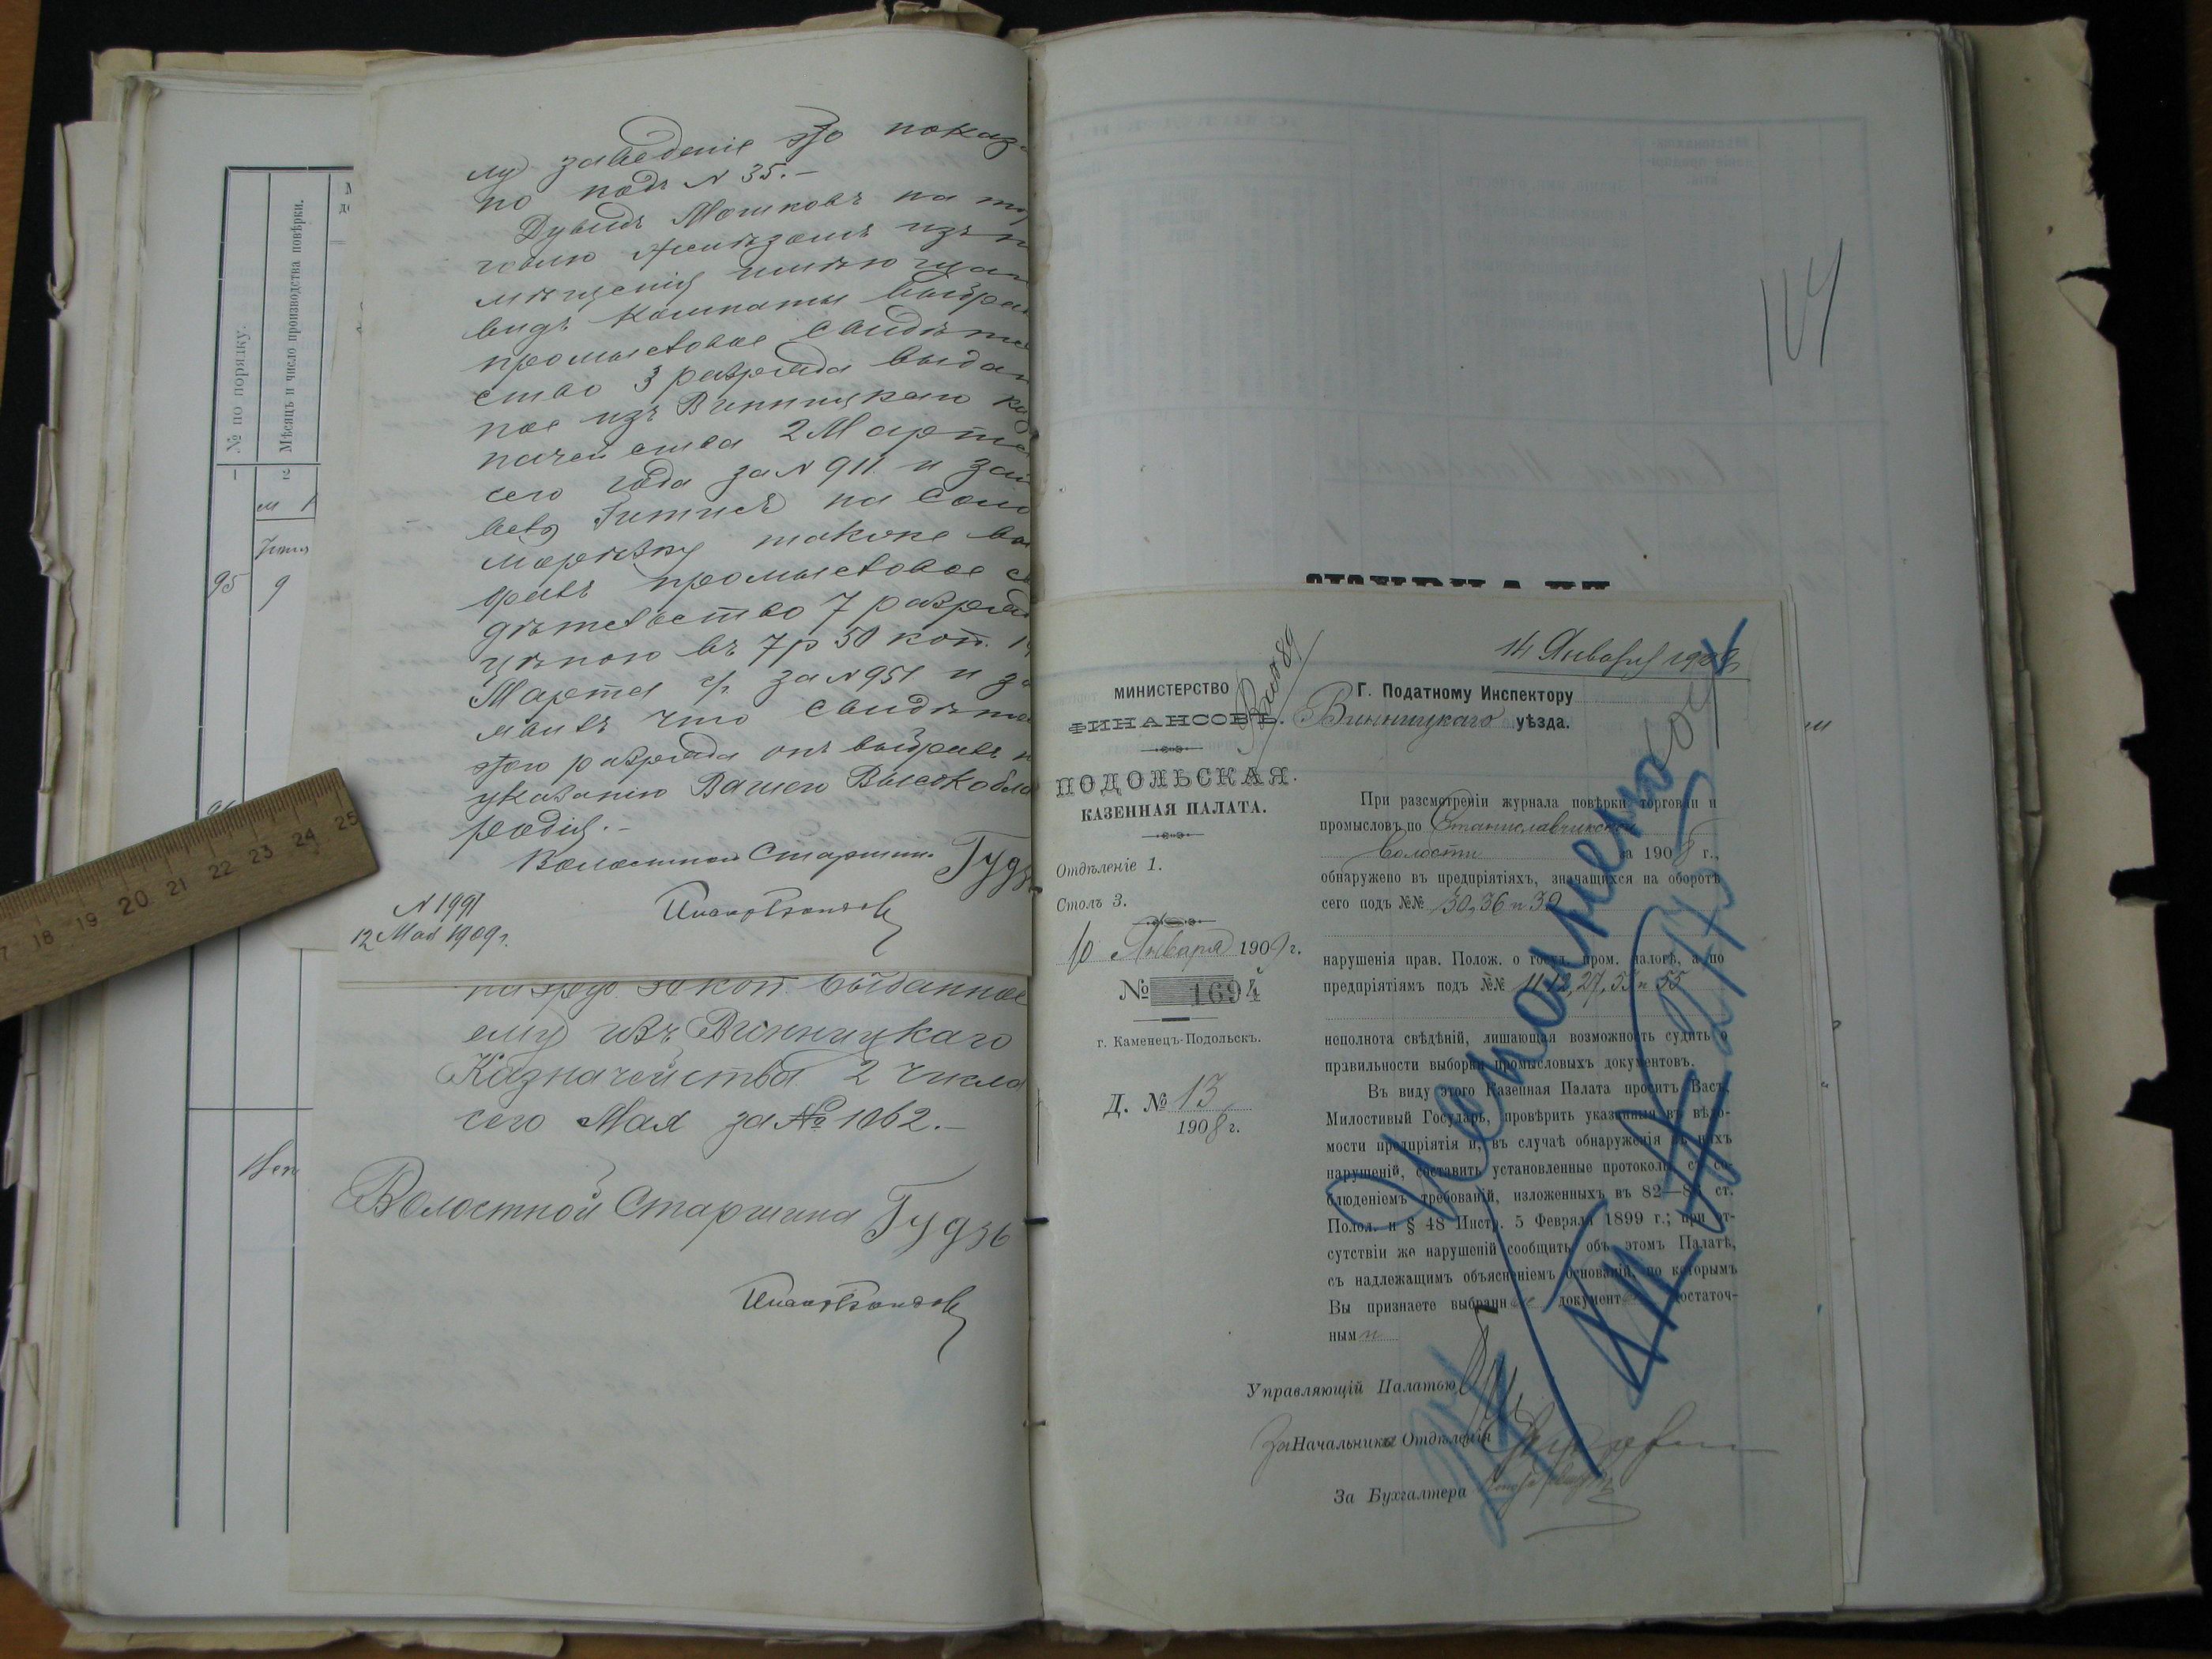 № по порядку.
Мѣсяцъ и число производства повѣрки.
1
2
95
9
му заведеніе это показа-
но подъ N 35.-
Дувидъ Мошковъ на тор
говлю желѣзомъ изъ по
мѣщенія имѣющаго
видъ комнаты выбрал
промысловое свидѣтел
ство 3 разряда выдан
ное изъ Винницкаго каз
начейства 2 Марта
сего года за N 911. и
на соло
морѣзку также вы
бралъ промысловое св
дѣтельство 7 разряда
цѣною въ 7 р 50 коп. 
Марта с/г. за N 951 и за
явилъ что свидѣтел
этого разряда онъ выбралъ по
указанію Вашего Высокобла
родія.-
Волостной Старшина Гудзь
N 1991
12 Мая 1909 г.
50 коп. выданное
ему изъ Винницкаго
Казначейства 2 числа
сего Мая за № 1062.-
Волостной Старшина Гудзь
114
14 Января 1909
МИНИСТЕРСТВО
ФИНАНСОВЪ.
ПОДОЛЬСКАЯ
КАЗЕННАЯ ПАЛАТА.
Отдѣленіе 1.
Столъ 3.
10 Января 1909 г.
№ 1694
г. Каменецъ-Подольскъ.
Д. № 13
1908 г.
Вх. 89
Г. Податному Инспектору
Винницкаго уѣзда.
При разсмотрѣніи журнала повѣрки торговли и
промысловъ по Станиславчикской
волости за 1908 г.,
обнаружено въ предпріятіяхъ, значащихся на оборотѣ
сего подъ №№ 30, 36 и 39
нарушенія прав. Полож. о госуд. пром. налогѣ, а по
предпріятіямъ подъ №№ 11-12, 27, 53 и 55
неполнота свѣдѣній, лишающая возможность судить о
правильности выборки промысловыхъ документовъ.
Въ виду этого Казенная Палата проситъ Васъ,
Милостивый Государь, провѣрить указанныя въ вѣдо-
мости предпріятія и, въ случаѣ обнаруженія въ нихъ
нарушеній, составить установленные протоколы съ со-
блюденіемъ требованій, изложенныхъ въ 82—86 ст.
Полож. и § 48 Инстр. 5 Февраля 1899 г.; при от-
сутствіи же нарушеній сообщить объ этомъ Палатѣ,
съ надлежащимъ объясненіемъ основаній, по которымъ
Вы признаете выбранные документы достаточ-
ными
Управляющій Палатою
За Начальника Отдѣленія
За Бухгалтера